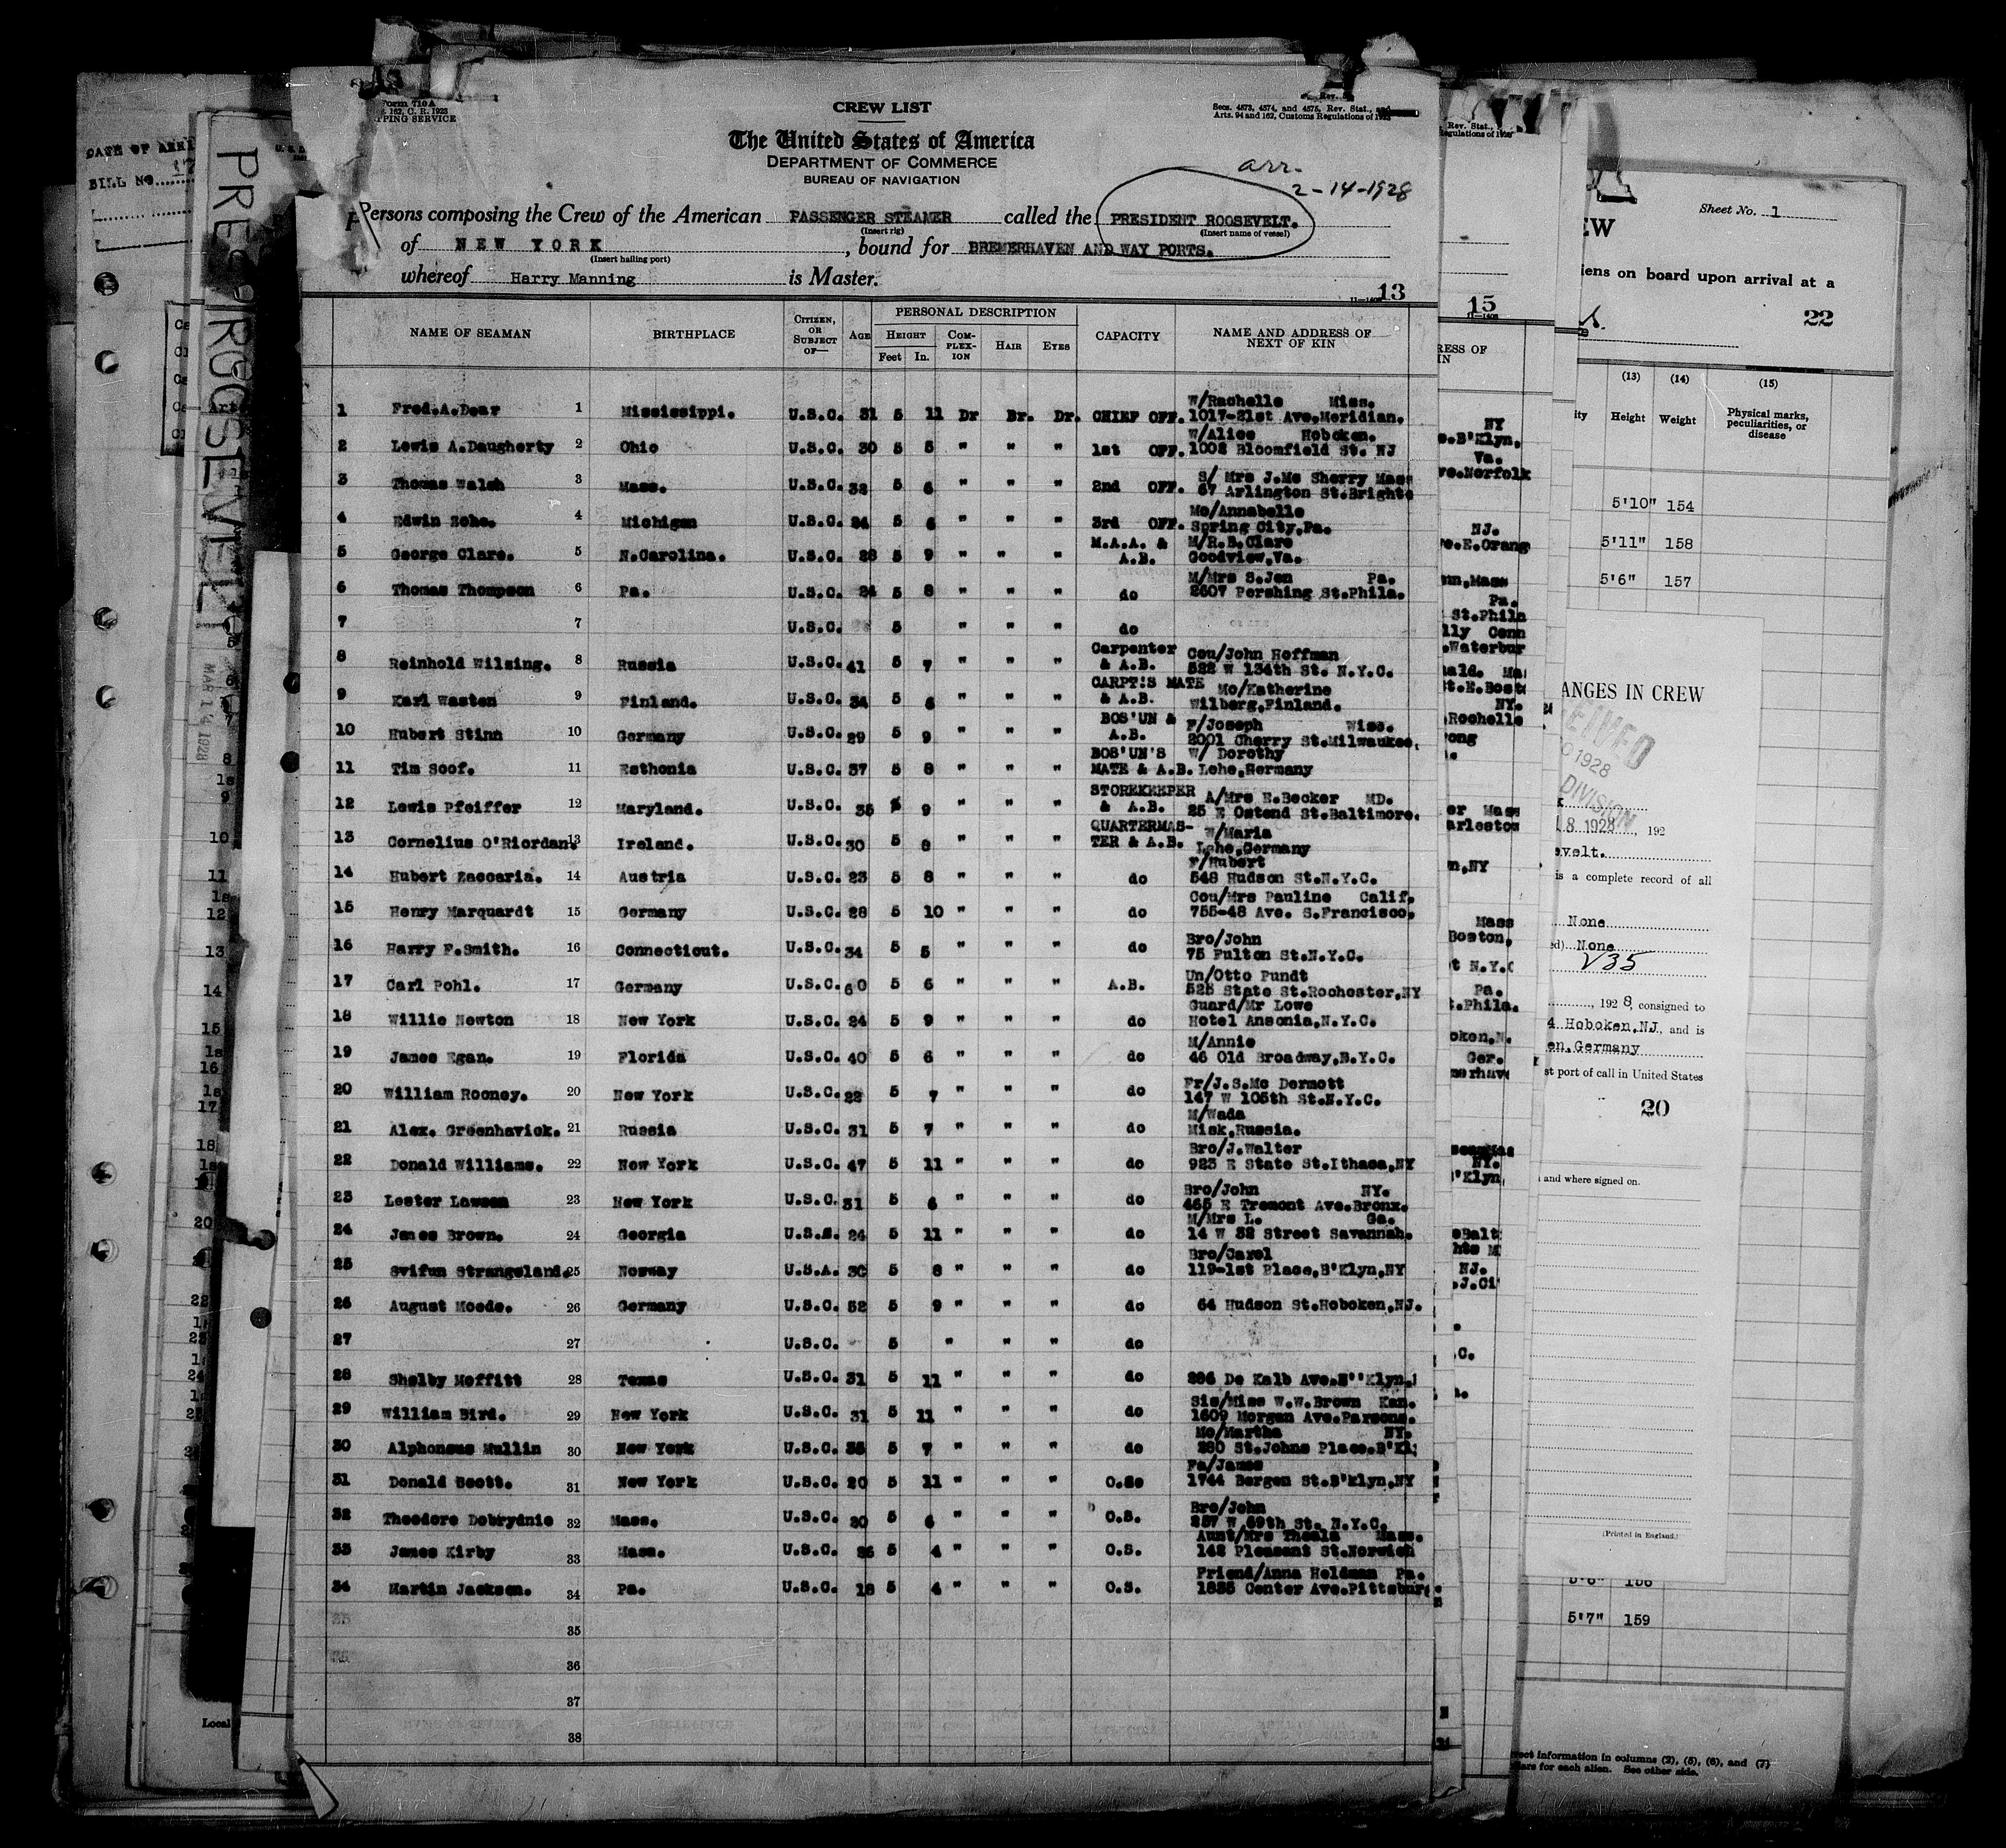 Form 710A
CREW LIST
The United States of America
DEPARTMENT OF COMMERCE
BUREAU OF NAVIGATION
Secs. 4573, 4574, and 4575, Rev. Stat., and
Arts. 94 and 162, Customs Regulations of
arr.
2-14-1928
Persons composing the Crew of the American PASSENGER STEAMER called the PRESIDENT ROOSEVELT.
(Insert rig) (Insert name of vessel)
of NEW YORK, bound for BREMERHAVEN AND WAY PORTS.
(Insert hailing port)
whereof Harry Manning is Master.
13
NAME OF SEAMAN BIRTHPLACE CITIZEN, OR SUBJECT OF— AGE PERSONAL DESCRIPTION HEIGHT Feet In. COMPLEXION HAIR EYES CAPACITY NAME AND ADDRESS OF NEXT OF KIN
W/Rachelle Miss.
1 Fred.A.Dear 1 Mississippi. U.S.C. 31 5 11 Dr Br. Dr. CHIEF OFF. 1017-21st Ave.Meridian.
W/Alice Hoboken.
2 Lewis A.Daugherty 2 Ohio U.S.C. 30 5 5 " " " 1st OFF. 1002 Bloomfield St. NJ
S/ Mrs J.Mc Sherry Mass
3 Thomas Walsh 3 Mass. U.S.C. 38 5 6 " " " 2nd OFF. 67 Arlington St.Brighto
Mo/Annabelle
4 Edwin 4 Michigan U.S.C. 24 5 6 " " " 3rd OFF. Spring City,Pa.
M.A.A. & M/R.B.Clare
5 George Clare. 5 N.Carolina. U.S.C. 28 5 9 " " " A.B. Goodview,Va.
M/Mrs S.Jen Pa.
6 Thomas Thompson 6 Pa. U.S.C. 24 5 8 " " " do 2607 Pershing St.Phila.
7 7 U.S.C. 5 " " " do
Carpenter Cou/John Hoffman
8 Reinhold Wilzing. 8 Russia U.S.C. 41 5 7 " " " & A.B. 522 W 134th St. N.Y.C.
CARPT:S MATE Mo/Katherine
9 Karl Wasten 9 Finland. U.S.C. 34 5 6 " " " & A.B. Wilberg,Finland.
BOS'UN & F/Joseph Wisc.
10 Hubert Stinn 10 Germany U.S.C. 29 5 9 " " " A.B. 2001 Cherry St.Milwaukee.
BOS'UN'S W/ Dorothy
11 Tim Soof. 11 Esthonia U.S.C. 37 5 8 " " " MATE & A.B. Lehe,Germany
STOREKEEPER A/Mrs E.Becker MD.
12 Lewis Pfeiffer 12 Maryland. U.S.C. 35 5 9 " " " & A.B. 25 E Ostend St.Baltimore.
QUARTERMAS- W/Maria
13 Cornelius O'Riordan. 13 Ireland. U.S.C. 30 5 8 " " " TER & A.B. Lehe,Germany
F/Hubert
14 Hubert Zaccaria. 14 Austria U.S.C. 23 5 8 " " " do 548 Hudson St.N.Y.C.
Cou/Mrs Pauline Calif.
15 Henry Marquardt 15 Germany U.S.C. 28 5 10 " " " do 755-48 Ave. S.Francisco.
Bro/John
16 Harry F.Smith. 16 Connecticut. U.S.C. 34 5 5 " " " do 75 Fulton St.N.Y.C.
Un/Otto Pundt
17 Carl Pohl. 17 Germany U.S.C. 60 5 6 " " " A.B. 525 State St.Rochester,NY
Guard/Mr Lowe
18 Willie Newton 18 New York U.S.C. 24 5 9 " " " do Hotel Ansonia,N.Y.C.
M/Annie
19 James Egan. 19 Florida U.S.C. 40 5 6 " " " do 46 Old Broadway,N.Y.C.
Fr/J.S.Mc Dermott
20 William Rooney. 20 New York U.S.C. 22 5 7 " " " do 147 W 105th St.N.Y.C.
M/Wada
21 Alex. Greenhavick. 21 Russia U.S.C. 31 5 7 " " " do Misk,Russia.
Bro/J.Walter
22 Donald Williams. 22 New York U.S.C. 47 5 11 " " " do 923 E State St.Ithaca,NY
Bro/John NY.
23 Lester Lawson 23 New York U.S.C. 31 5 6 " " " do 465 E Tremont Ave.Bronx.
M/Mrs L. Ga.
24 James Brown. 24 Georgia 24 5 11 " " " do 14 W 32 Street Savannah.
Bro/Carel
25 Svifun Strangeland. 25 Norway U.S.A. 30 5 8 " " " do 119-1st Place,B'Klyn,NY
26 August Moede. 26 Germany U.S.C. 52 5 9 " " " do 64 Hudson St.Hoboken,NJ.
27 27 U.S.C. 5 " " " do
28 Shelby Moffitt 28 Texas U.S.C. 31 5 11 " " " do 286 De Kalb Ave.B''Klyn.
Sis/Miss W.W.Brown Kan.
29 William Bird. 29 New York U.S.C. 31 5 11 " " " do 1609 Morgan Ave.Parsons.
Mo/Martha NY.
30 Alphonsus Mullin 30 New York U.S.C. 35 5 7 " " " do 280 St.Johns Place.B'Kl
Fa/James
31 Donald Scott. 31 New York U.S.C. 20 5 11 " " " O.S. 1744 Bergen St.B'klyn,NY
Bro/John
32 Theodore Dobrydnio 32 Mass. U.S.C. 20 5 6 " " " O.S. 257 W 69th St. N.Y.C.
Aunt/Mrs Mass.
33 James Kirby 33 Mass. U.S.C. 5 4 " " " O.S. 142 Pleasant St.Norwich
Friend/Anna Holdman Pa.
34 Martin Jackson. 34 Pa. U.S.C. 18 5 4 " " " O.S. 1835 Center Ave.Pittsburg
35
36
37
38
PRES ROOSEVELT
MAR 14 1928
BILL NO.
Local
15
Sheet No. 1
EW
iens on board upon arrival at a
22
(13) (14) (15)
Height Weight Physical marks, peculiarities, or disease
5'10" 154
5'11" 158
5'6" 157
ANGES IN CREW
DIVISION
8 1928, 192
evelt.
is a complete record of all
None
None
V35
, 192 8, consigned to
4 Hoboken,NJ, and is
en,Germany
st port of call in United States
20
and where signed on.
(Printed in England.)
5'7" 159
rect information in columns (2), (5), (6), and (7)
llars for each alien. See other side.